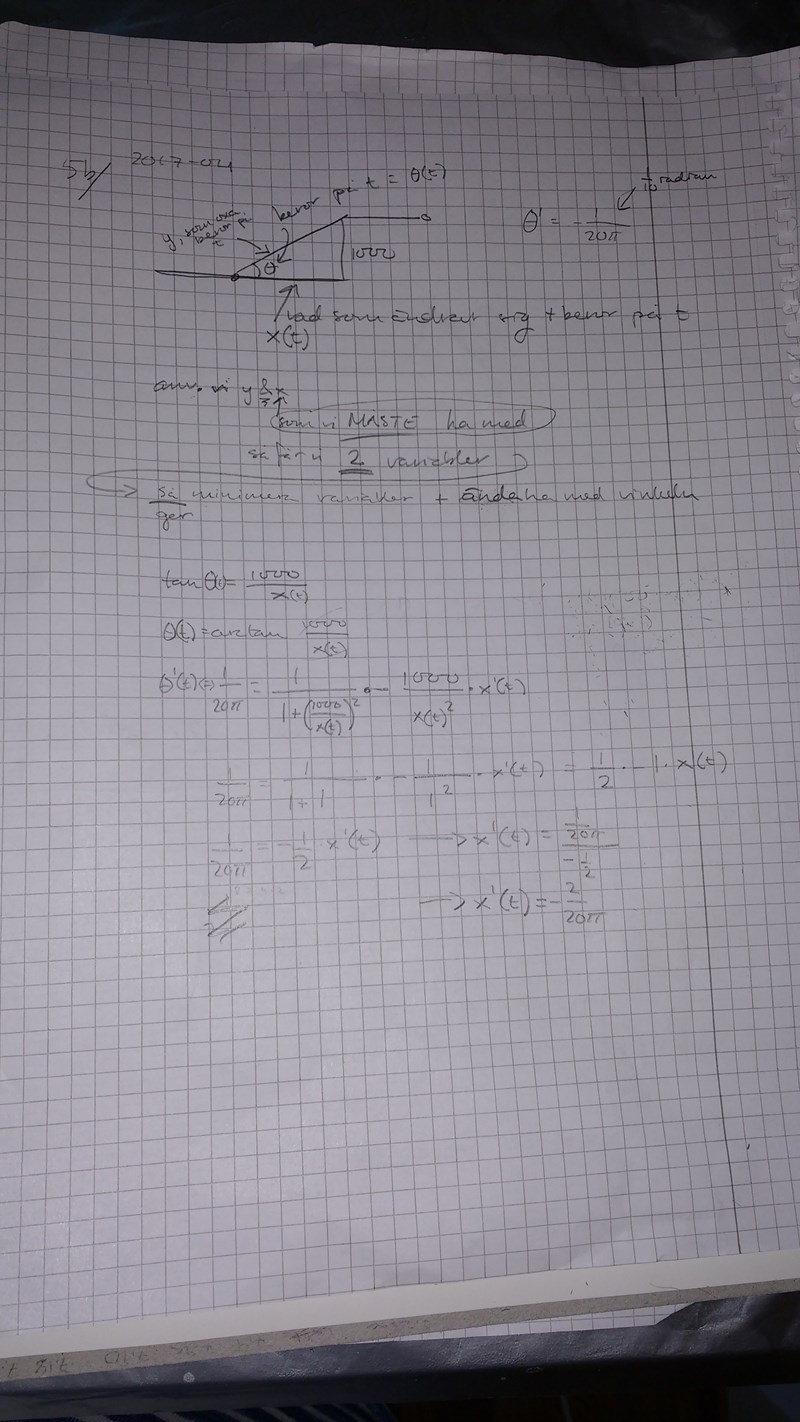 5b/ 2017-04
beror på t = θ(t)
y, som oxå beror på t
θ
1000
θ' = -1/(20π)
1/10 radian
vad som ändrar sig + beror på t
x(t)
anv. vi y & x
som vi MÅSTE ha med
så får vi 2 variabler
så minimera variabler + ändå ha med vinkeln
ger
tan θ(t) = 1000/x(t)
θ(t) = arctan 1000/x(t)
θ'(t) ⇔ 1/(20π) = 1/(1+(1000/x(t))^2) · - 1000/x(t)^2 · x'(t)
1/(20π) = 1/(1+1) · - 1/1^2 · x'(t) = 1/2 · -1 · x'(t)
1/(20π) = -1/2 x'(t) → x'(t) = (1/(20π))/(-1/2)
→ x'(t) = -2/(20π)